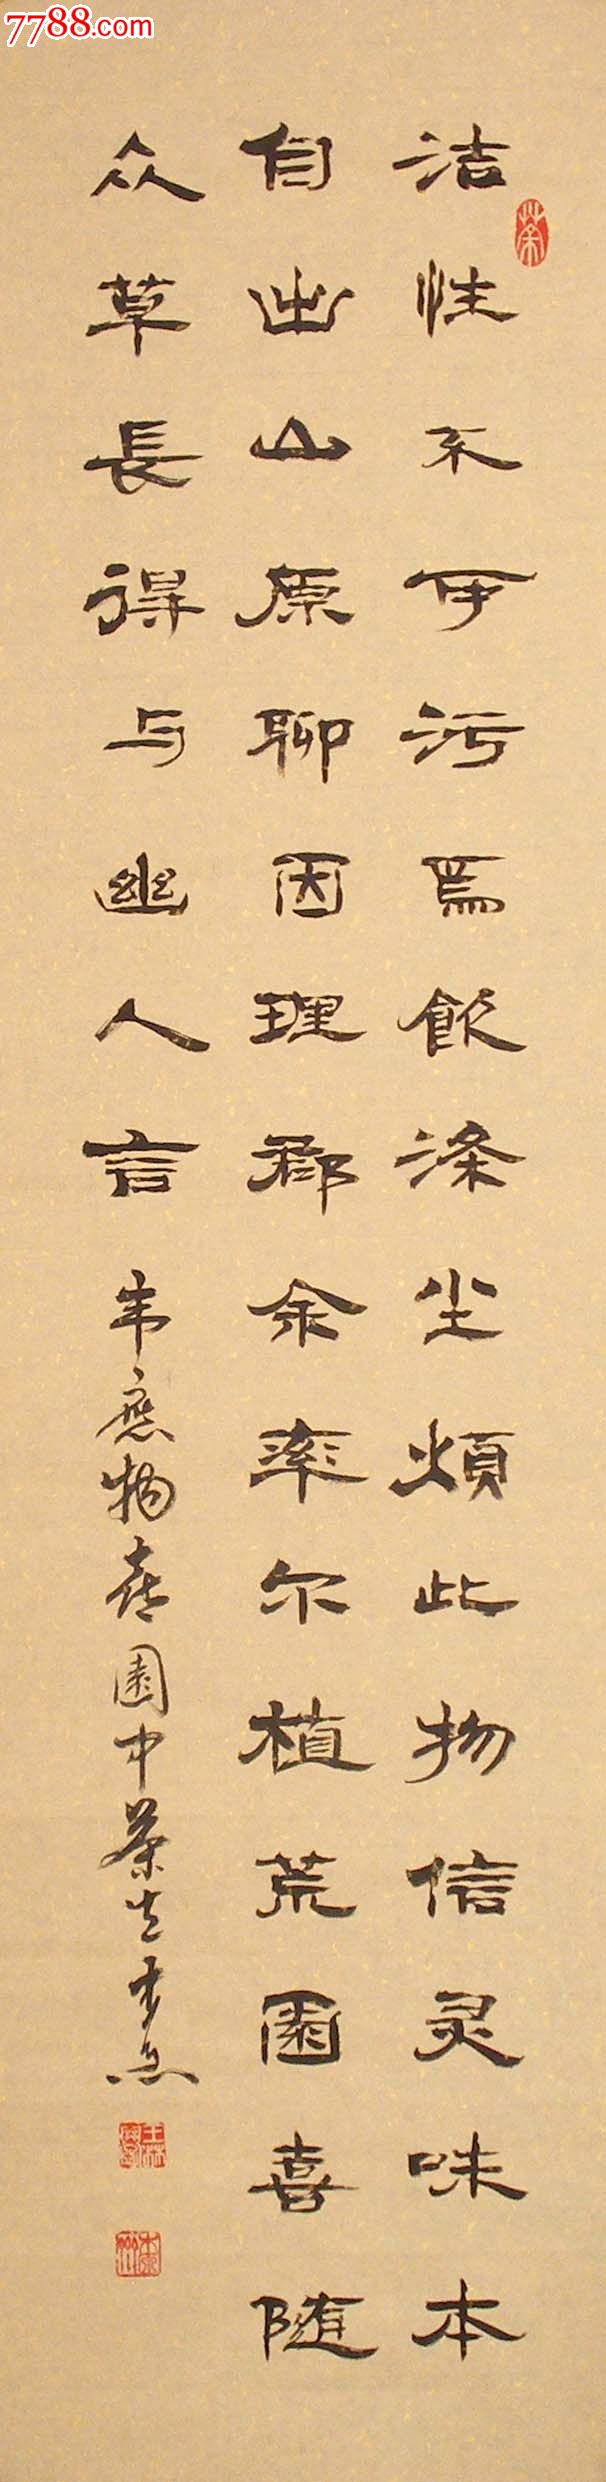 7788.com
茶
洁性不可污為飲涤尘煩此物信灵味本
自出山原聊因理郡余率尔植荒園喜随
众草長得与幽人言 韦應物喜園中茶生